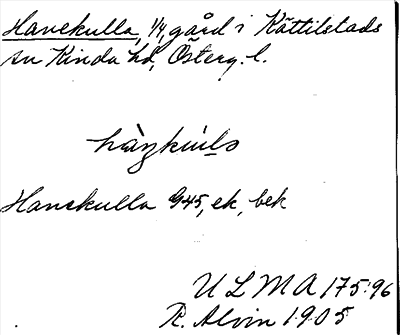 Hanekulla, 1/4, gård i Kättilstads
sn Kinda hd, Österg. l.
Hanekulla 945, ek, bek
U L M A 175:96
R. Alvin 1905